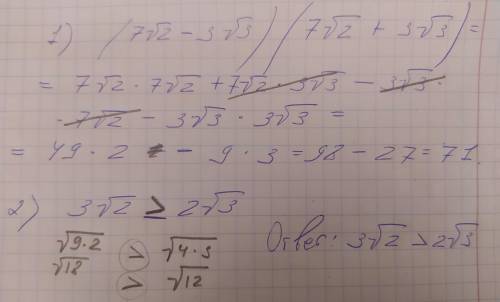 1) (7√2 - 3√3) (7√2 + 3√3) =
= 7√2 · 7√2 + 7√2 · 3√3 - 3√3 ·
· 7√2 - 3√3 · 3√3 =
= 49 · 2 - 9 · 3 = 98 - 27 = 71.
2) 3√2 ≥ 2√3
√9·2 > √4·3
√18 > √12
Ответ: 3√2 > 2√3